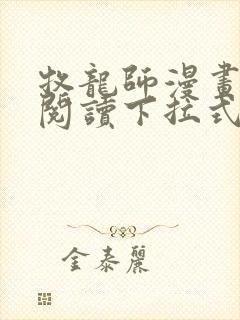 牧龍師漫畫
閱讀下拉式
金泰麗